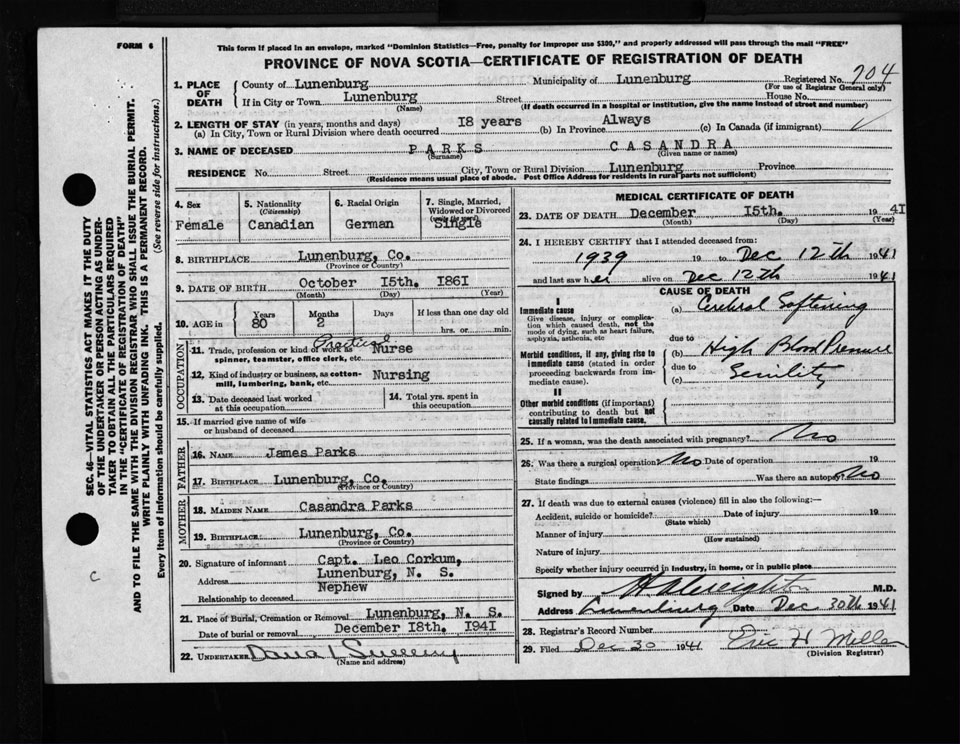 FORM 6
This form if placed in an envelope, marked "Dominion Statistics—Free, penalty for improper use $300," and properly addressed will pass through the mail "FREE"
PROVINCE OF NOVA SCOTIA—CERTIFICATE OF REGISTRATION OF DEATH
1. PLACE OF DEATH
County of Lunenburg Municipality of Lunenburg Registered No. 704
(For use of Registrar General only)
If in City or Town Lunenburg Street House No.
(Name) (If death occurred in a hospital or institution, give the name instead of street and number)
2. LENGTH OF STAY (in years, months and days)
(a) In City, Town or Rural Division where death occurred 18 years (b) In Province Always (c) In Canada (if immigrant)
3. NAME OF DECEASED PARKS CASANDRA
(Surname) (Given name or names)
RESIDENCE No. Street City, Town or Rural Division Lunenburg Province
(Residence means usual place of abode. Post Office Address for residents in rural parts not sufficient)
4. Sex
Female
5. Nationality
(Citizenship)
Canadian
6. Racial Origin
German
7. Single, Married, Widowed or Divorced
(write the word)
Single
8. BIRTHPLACE Lunenburg, Co.
(Province or Country)
9. DATE OF BIRTH October 15th. 1861
(Month) (Day) (Year)
10. AGE in Years Months Days If less than one day old
80 2 hrs. or min.
OCCUPATION
11. Trade, profession or kind of work as Practical Nurse
spinner, teamster, office clerk, etc.
12. Kind of industry or business, as cotton-mill, lumbering, bank, etc. Nursing
13. Date deceased last worked at this occupation
14. Total yrs. spent in this occupation
15. If married give name of wife or husband of deceased
FATHER
16. NAME James Parks
17. BIRTHPLACE Lunenburg, Co.
(Province or Country)
MOTHER
18. MAIDEN NAME Casandra Parks
19. BIRTHPLACE Lunenburg, Co.
(Province or Country)
20. Signature of informant Capt. Leo Corkum,
Address Lunenburg, N. S.
Relationship to deceased Nephew
21. Place of Burial, Cremation or Removal Lunenburg, N. S.
Date of burial or removal December 18th. 1941
22. UNDERTAKER
(Name and address)
MEDICAL CERTIFICATE OF DEATH
23. DATE OF DEATH December 15th. 1941
(Month) (Day) (Year)
24. I HEREBY CERTIFY that I attended deceased from:
1939 19 to Dec 12th 1941
and last saw her alive on Dec 12th 1941
CAUSE OF DEATH
I
Immediate cause
Give disease, injury or complication which caused death, not the mode of dying, such as heart failure, asphyxia, asthenia, etc
(a) Cerebral Softening
due to
Morbid conditions, if any, giving rise to immediate cause (stated in order proceeding backwards from immediate cause).
(b) High Blood Pressure
due to
(c) Senility
II
Other morbid conditions (if important) contributing to death but not causally related to immediate cause.
25. If a woman, was the death associated with pregnancy? No
26. Was there a surgical operation? No Date of operation 19
State findings Was there an autopsy? No
27. If death was due to external causes (violence) fill in also the following:—
Accident, suicide or homicide? Date of injury 19
(State which)
Manner of injury
(How sustained)
Nature of injury
Specify whether injury occurred in industry, in home, or in public place
Signed by M.D.
Address Lunenburg Date Dec 30th 1941
28. Registrar's Record Number
29. Filed Dec 30 1941
(Division Registrar)
SEC. 46—VITAL STATISTICS ACT MAKES IT THE DUTY
OF THE UNDERTAKER OR PERSON ACTING AS UNDER-
TAKER TO OBTAIN ALL THE PARTICULARS REQUIRED
IN THE "CERTIFICATE OF REGISTRATION OF DEATH"
AND TO FILE THE SAME WITH THE DIVISION REGISTRAR WHO SHALL ISSUE THE BURIAL PERMIT.
WRITE PLAINLY WITH UNFADING INK. THIS IS A PERMANENT RECORD.
Every item of Information should be carefully supplied. (See reverse side for instructions.)
C